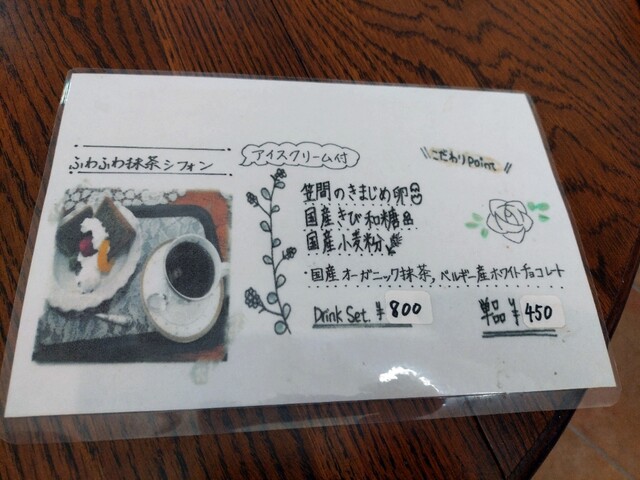 ふわふわ抹茶シフォン
アイスクリーム付
こだわりpoint
笠間のきまじめ卵
国産きび和糖
国産小麦粉
・国産オーガニック抹茶,ベルギー産ホワイトチョコレート
Drink Set. ¥800
単品 ¥450